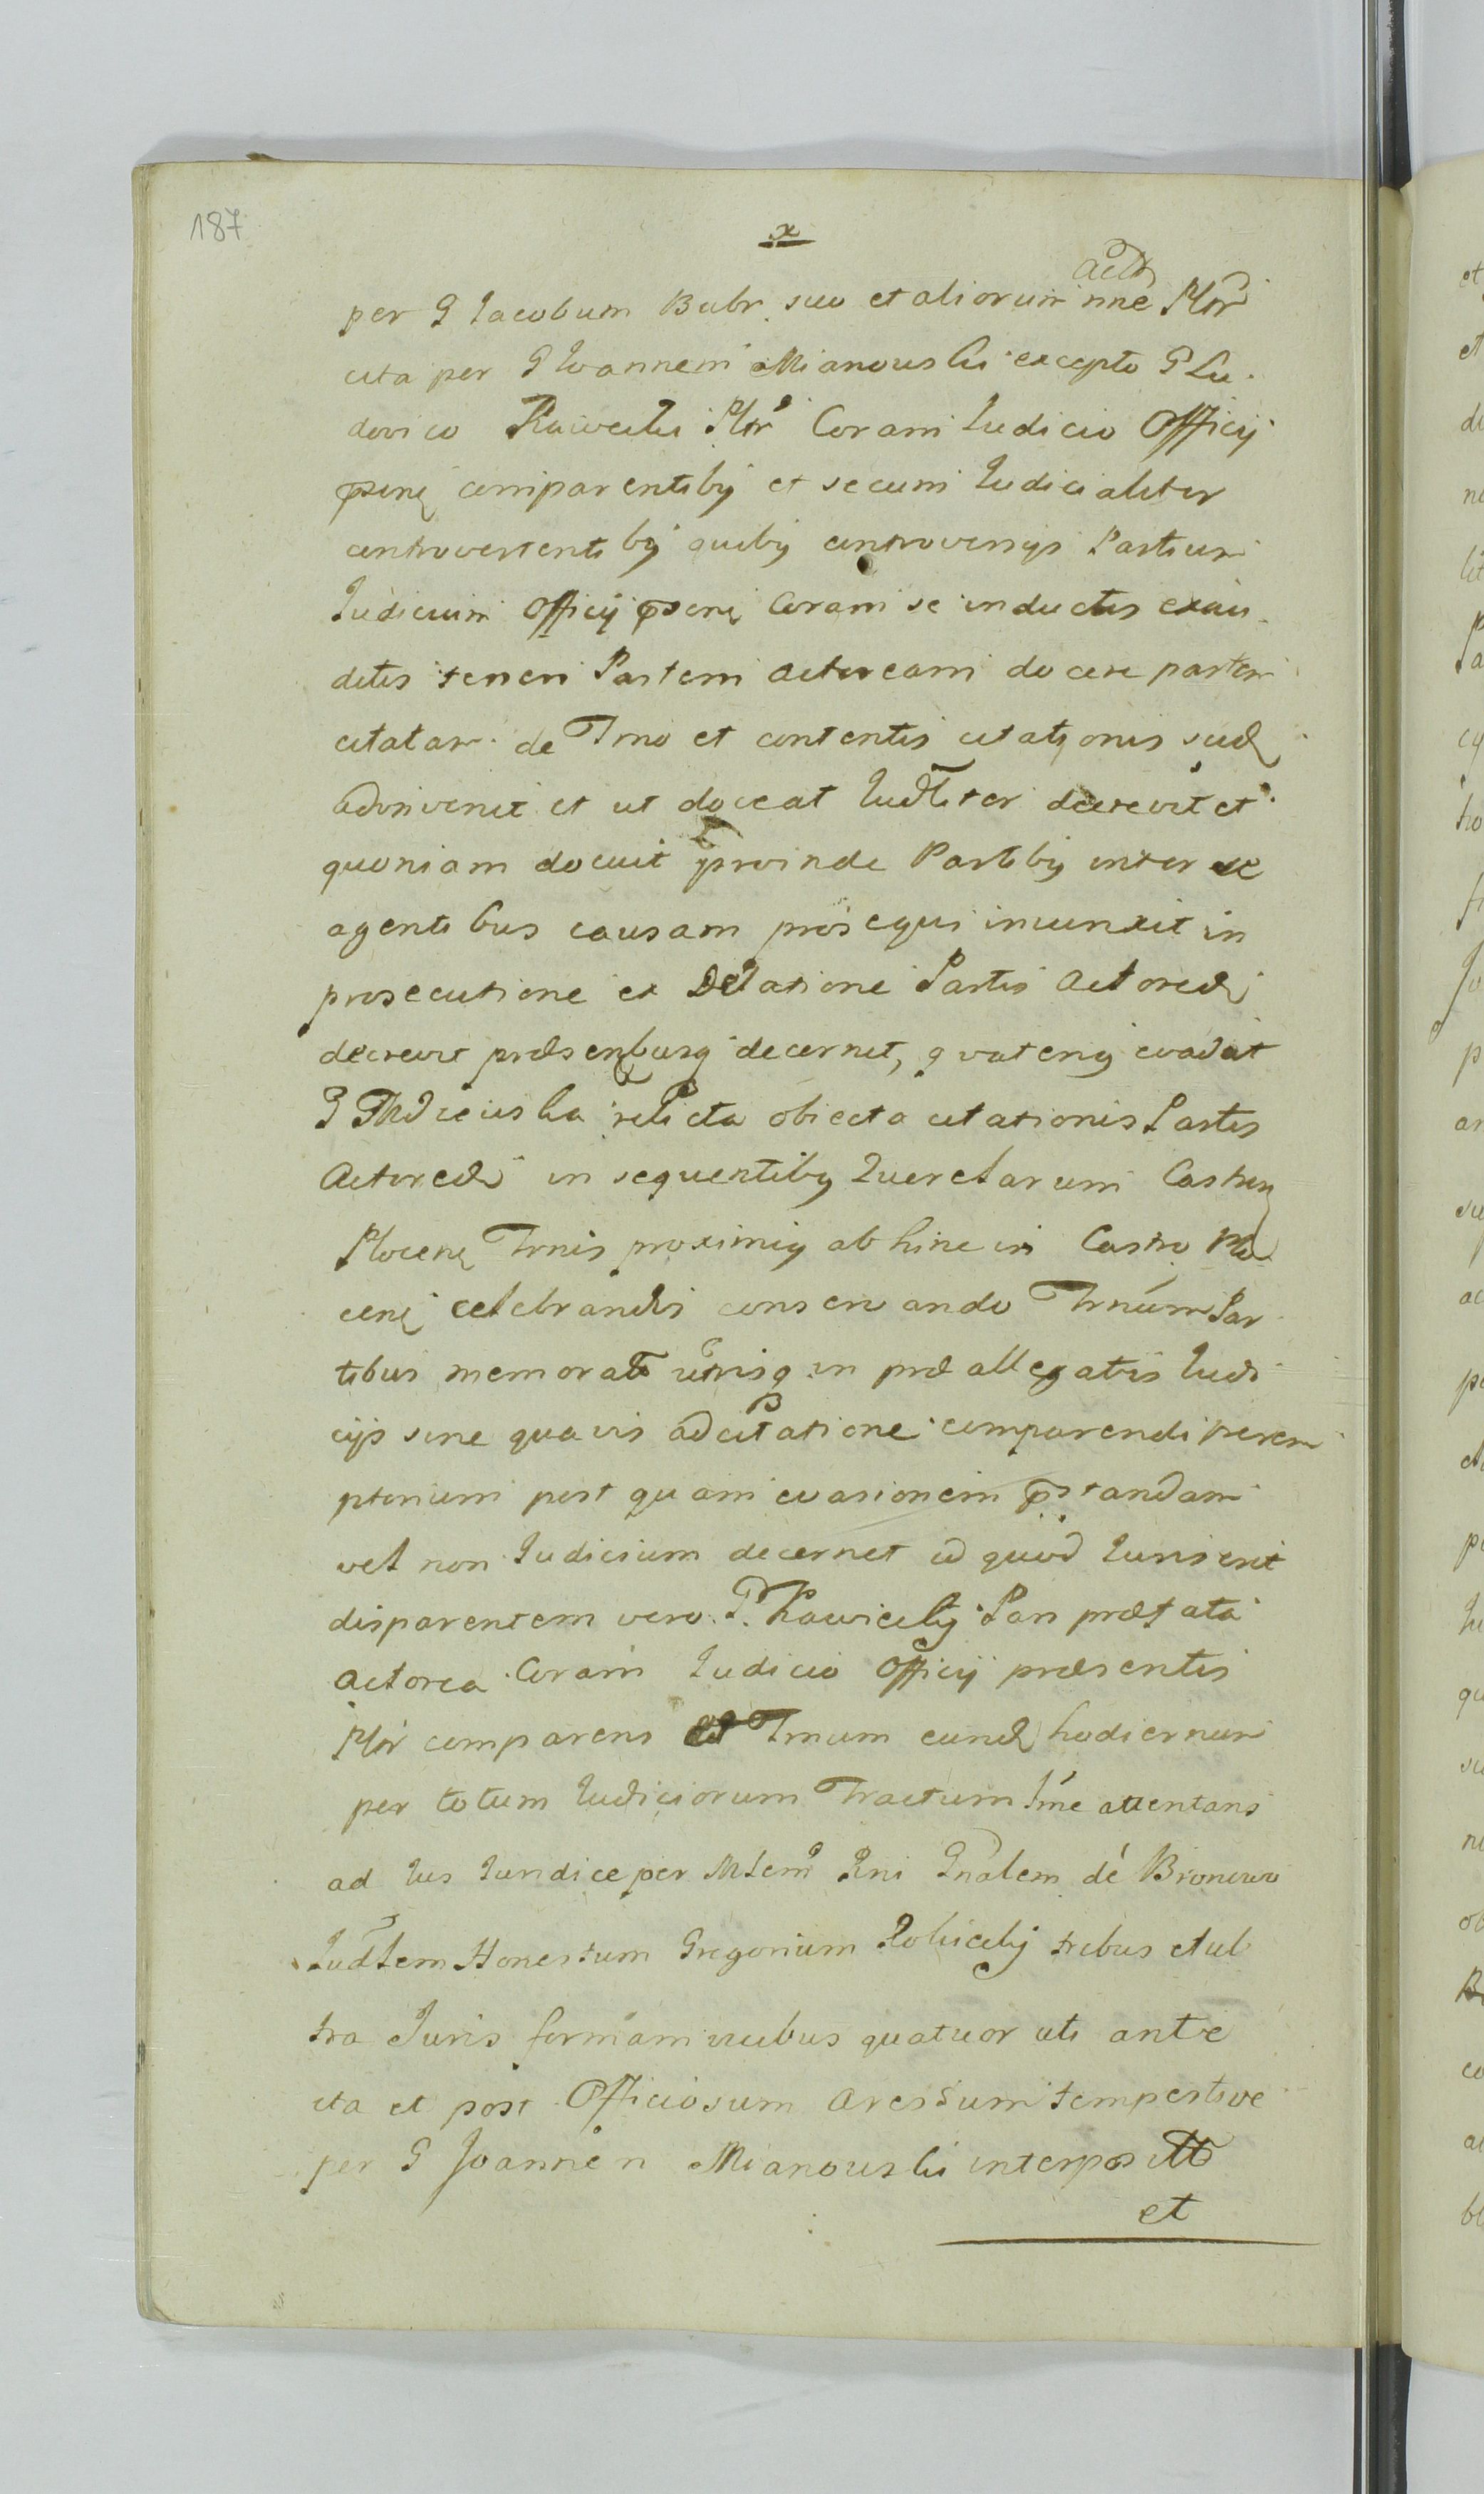 187
x
act
per G Iacobum Bubr suo et aliorum nne Mtr
cita per G Ioannem Mianouski excepto G Lu
dovico Rawicki Mtr Coram Iudicio Officij
pseng comparentibg et secum Iudicialiter
controvertentibg quibg controversys Partium
Iudicium Officij pseng Coram se inductis exau
ditis teneri Partem actoream docere partem
citatam de Tmo et contentis citationis suæ
adinvenit et ut doceat Iudlter decrevit et
quoniam docuit proinde Partibg inter se
agentibus causam prosequi iniunxit in
prosecutione ex Delatione Partis Actoreæ
decrevit præsentibusq decernit, qvateng evadat
G relicta obiecta citationis Partis
Actoreæ in sequentibg Querelarum Castren
Plocen Trnis proximig abhinc in Castro Plo
cen celebrandis conservando Trnum Par
tibus memorat utrisq in præallegatis Iudi
cijs sine quavis adcitatione comparendi perem
ptorium post quam evasionem pstandam
vel non Iudicium decernet id quod Iuris erit
disparentem vero G. Rawicky Pars præfata
actorea Coram Iudicio Officij præsentis
Mtr comparens Tmum eund hodiernum
per totum Iudiciorum Tractum ltme attentans
ad Ius Iuridice per Mtem Rni Gnalem de Bronowo
Iudlem Honestum Gregorium Robicky tribus et ul
tra Iuris formam vicibus quatuor uti ante
ita et post Officiosum arestum tempestive
per G Joannem Mianouski interposit
et